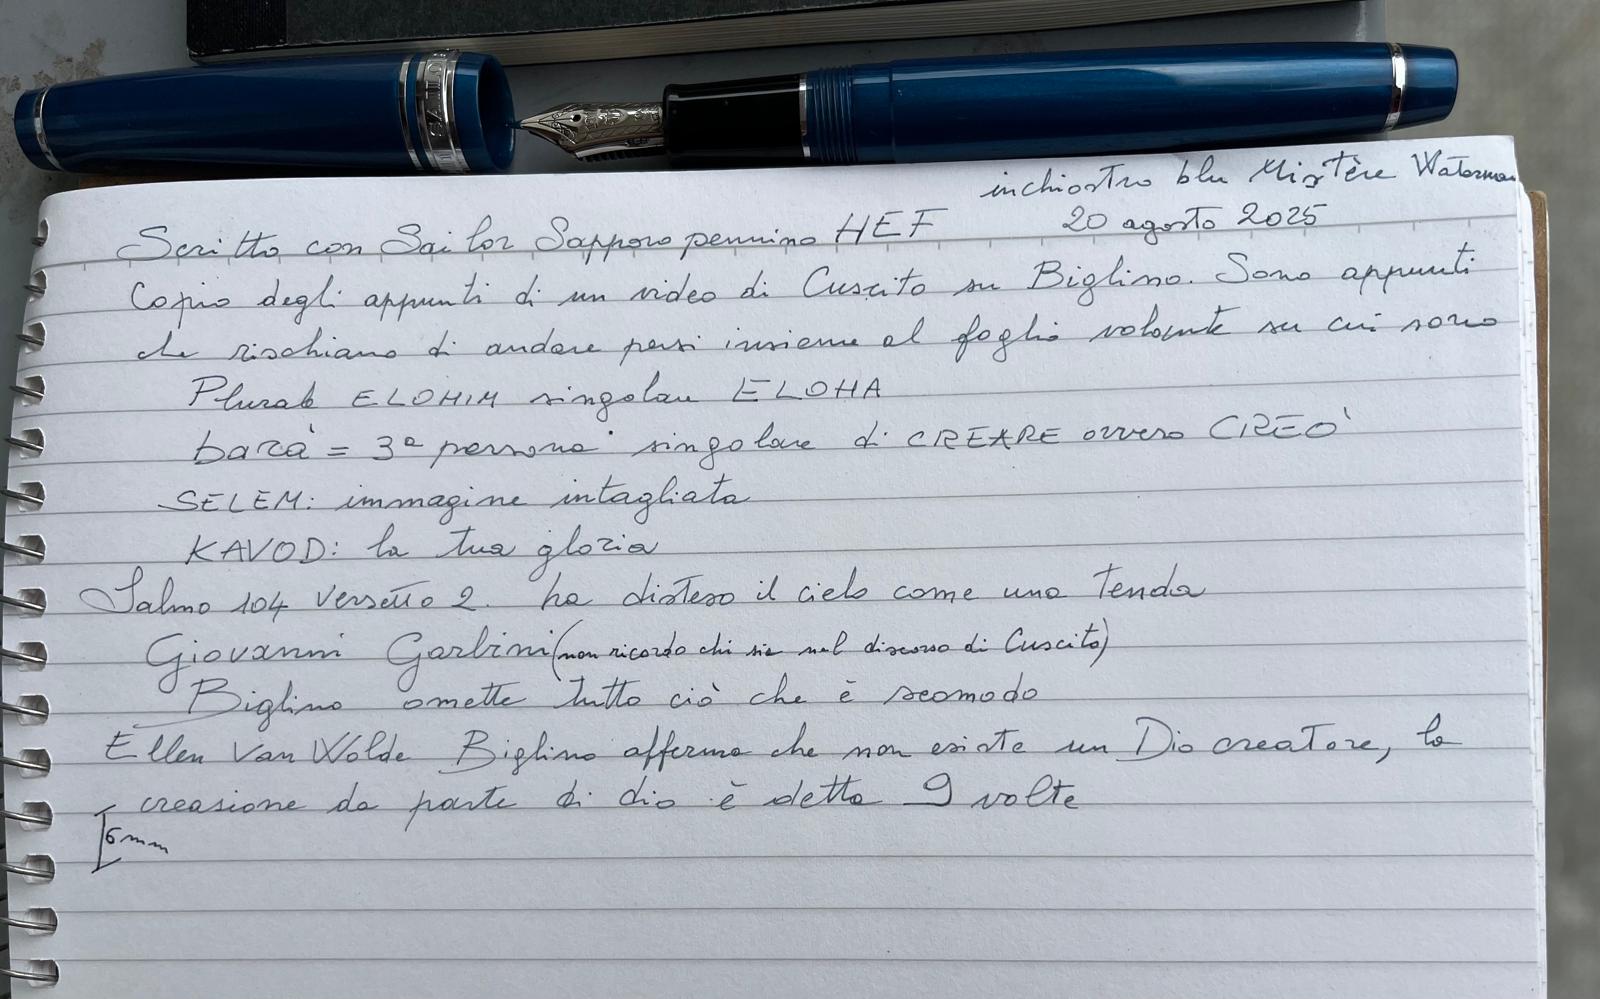 SAILOR
inchiostro blu Mistère Waterman
20 agosto 2025
Scritto con Sailor Sapporo pennino HEF
Copio degli appunti di un video di Cuscito su Biglino. Sono appunti
che rischiano di andare persi insieme al foglio volante su cui sono
Plurale ELOHIM singolare ELOHA
barà = 3ª persona singolare di CREARE ovvero CREÒ
SELEM: immagine intagliata
KAVOD: la tua gloria
Salmo 104 versetto 2. ha disteso il cielo come una tenda
Giovanni Garbini (non ricordo chi sia nel discorso di Cuscito)
Biglino omette tutto ciò che è scomodo
Ellen Van Wolde Biglino afferma che non esiste un Dio creatore, la
creasione da parte di dio è detta 9 volte
6 mm